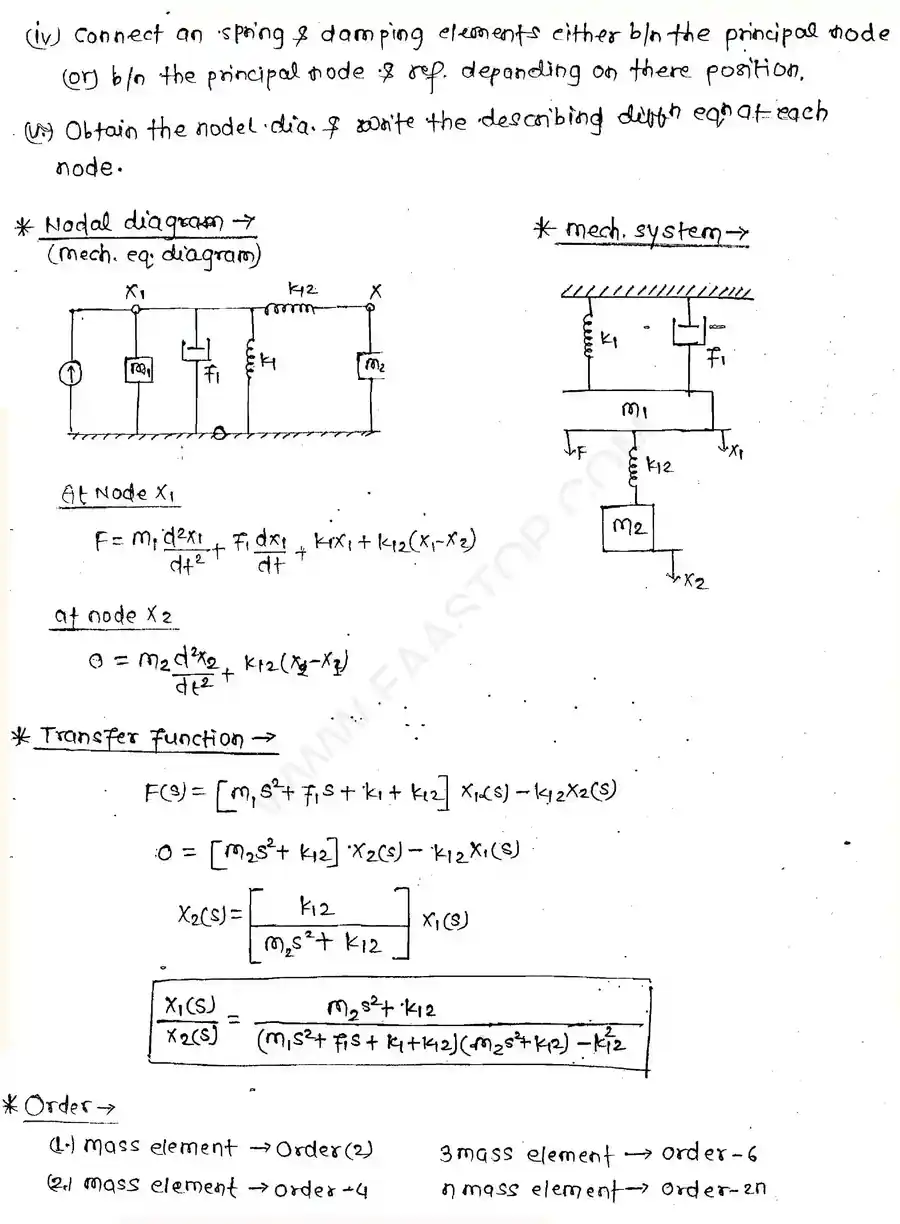 (iv) Connect an spring & damping elements either b/n the principal node
(or) b/n the principal node & ref. depanding on there position.
(v) Obtain the nodel dia. & write the describing diffn eqn at each
node.
* Nodal diagram →
(mech. eq. diagram)
* mech. system →
X1 K12 X
m1 F1 K1 m2
K1 F1
m1
F K12 X1
m2
X2
At Node X1
F = m1 d²x1/dt² + F1 dx1/dt + K1x1 + K12(x1-x2)
at node X2
0 = m2 d²x2/dt² + K12(x2-x1)
* Transfer function →
F(s) = [m1s² + F1s + K1 + K12] X1(s) - K12X2(s)
0 = [m2s² + K12] X2(s) - K12X1(s)
X2(s) = [K12 / m2s² + K12] X1(s)
X1(s)/X2(s) = m2s² + K12 / (m1s² + F1s + K1 + K12)(m2s² + K12) - K12²
* Order →
(1.) mass element → Order(2) 3 mass element → order-6
(2.) mass element → order-4 n mass element → order-2n
WWW.FAASTOP.COM